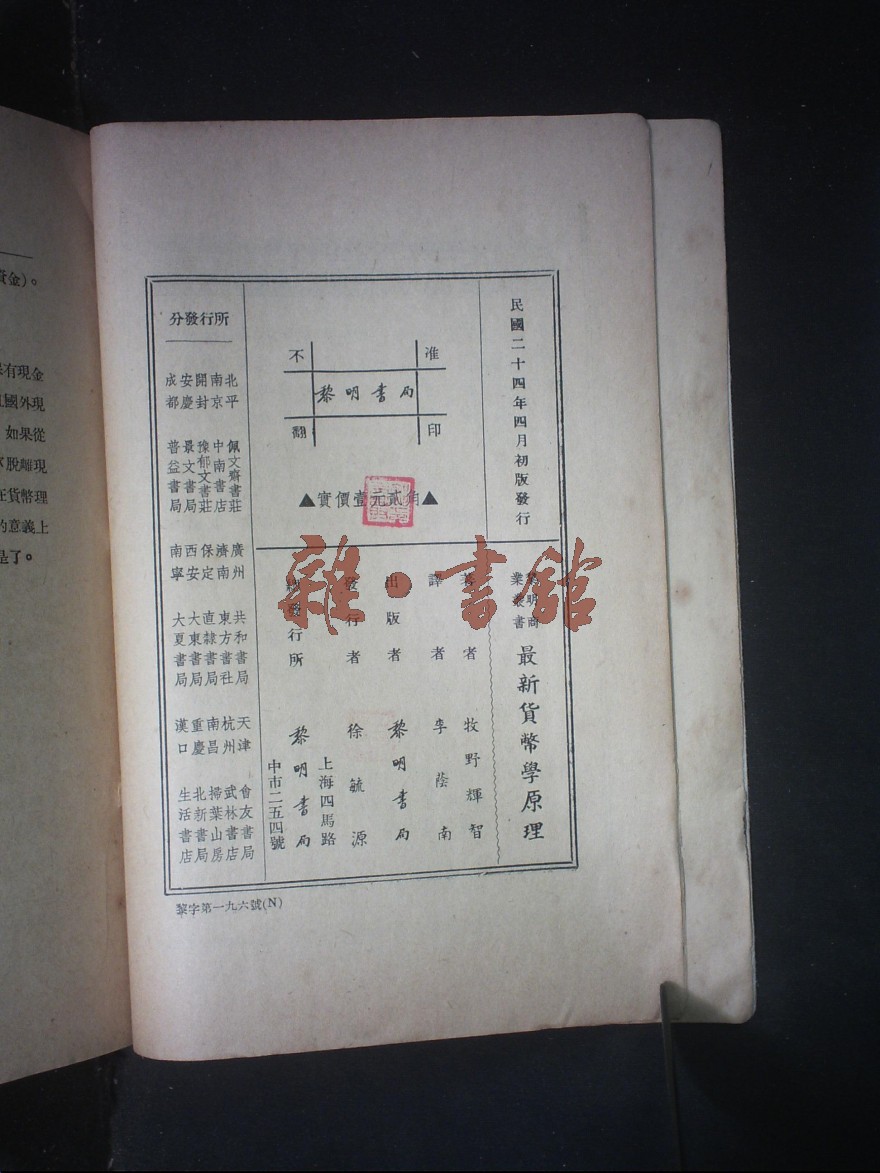 民國二十四年四月初版發行
不准
黎明書局
翻印
▲實價壹元貳角▲
黎明商業叢書
最新貨幣學原理
著者 牧野輝智
譯者 李蔭南
出版者 黎明書局
發行者 徐毓源
上海四馬路
總發行所 黎明書局
中市二五四號
分發行所
北平 佩文齋書莊
南京 中南書店
開封 豫郁文書莊
安慶 景文書局
成都 普益書局
廣州 共和書局
濟南 東方書社
保定 直隸書局
西安 大東書局
南寧 大夏書局
天津 會友書局
杭州 武林書店
南昌 掃葉山房
重慶 北新書局
漢口 生活書店
黎字第一九六號(N)
雜·書館
資金)。
有現金
國外現
如果從
脫離現
在貨幣理
的意義上
是了。